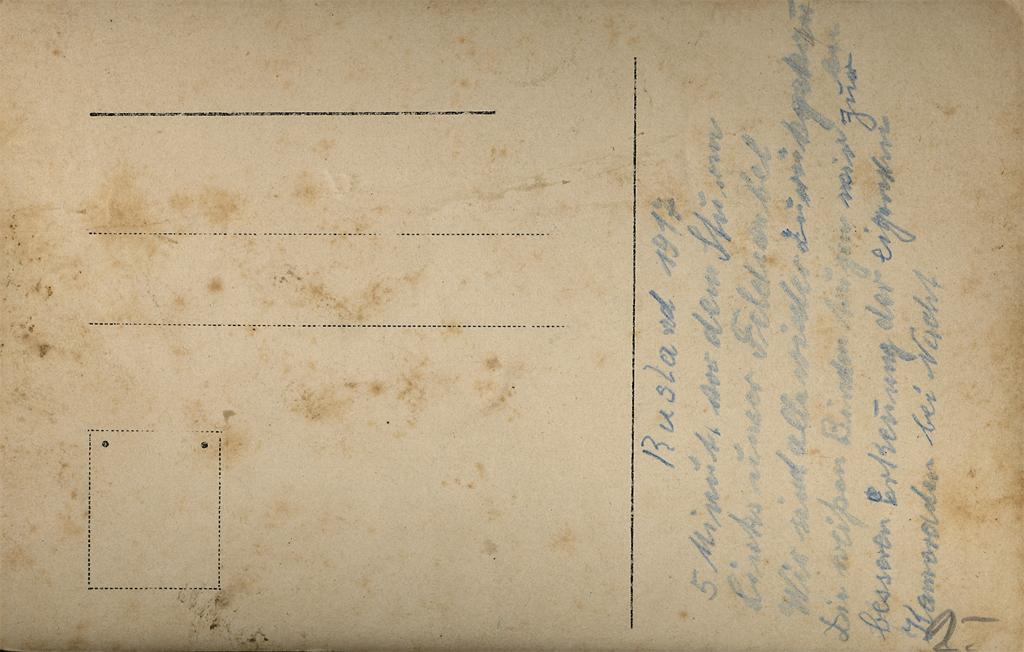 Rusland 1917
5 Minut. vor dem Sturm
links unser Feldwebel
Wir sind alle wieder zurückgekehrt
Die weißen Binden tragen wir zur
besseren Erkennung der eigenen
Kameraden bei Nacht